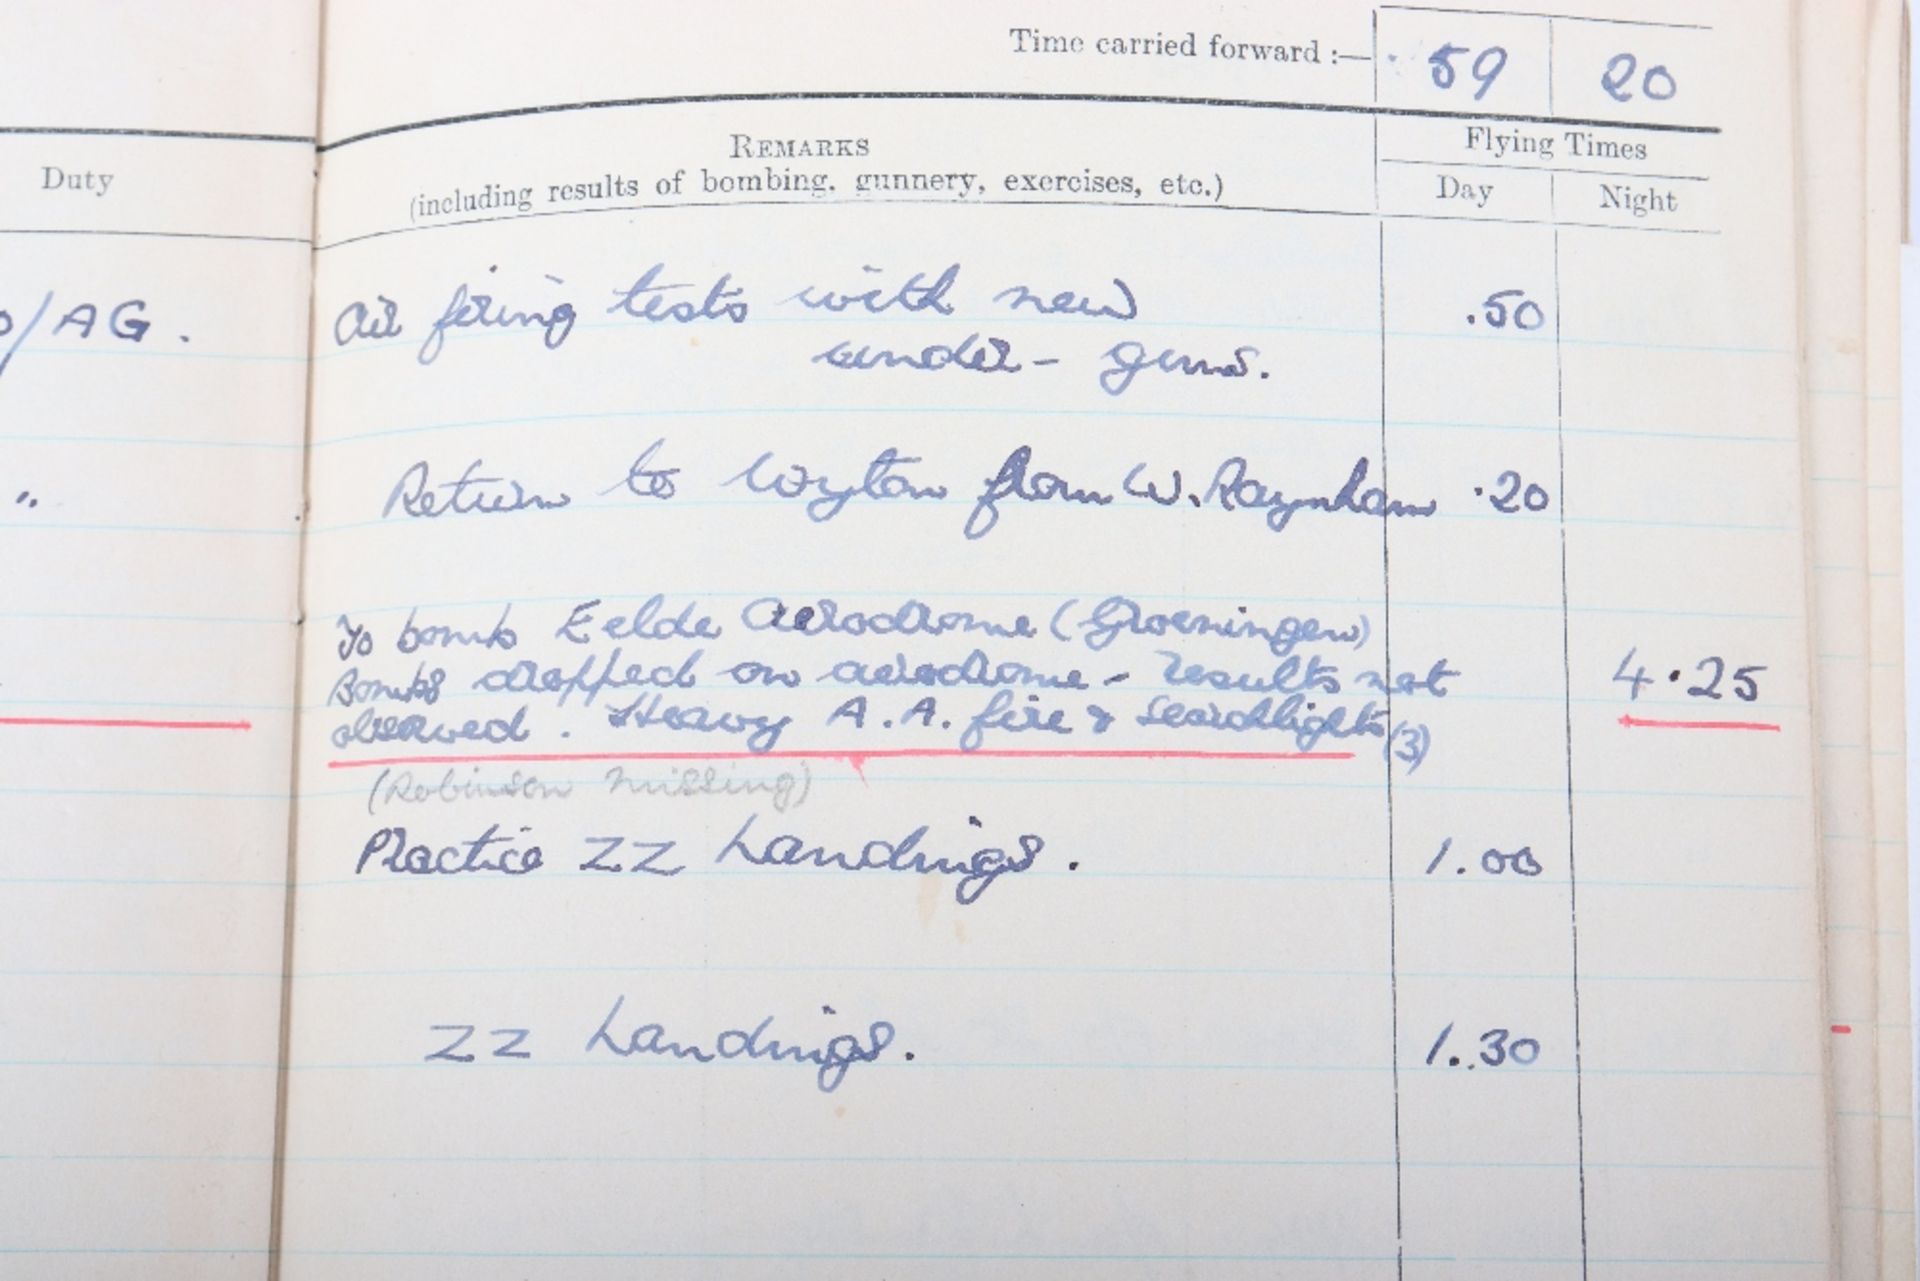 Time carried forward :— · 59 20
Duty
REMARKS
(including results of bombing, gunnery, exercises, etc.)
Flying Times
Day Night
/AG.
Air firing tests with new .50
under - guns.
"
Return to Wyton from W. Raynham .20
To bomb Eelde Aerodrome (Groeningen)
Bombs dropped on aerodrome - results not 4.25
observed. Heavy A.A. fire & searchlights (3)
(Robinson missing)
Practice ZZ Landings. 1.00
ZZ Landings. 1.30